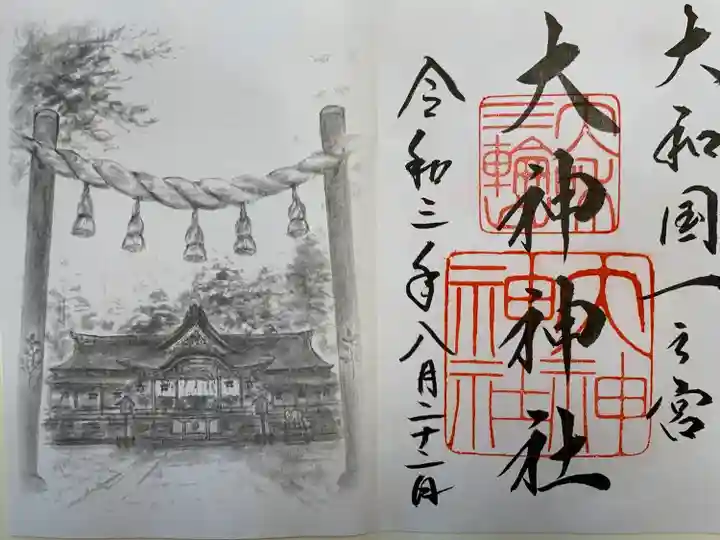 大和国一之宮
大神神社
令和三年八月二十二日
三輪
大神神社